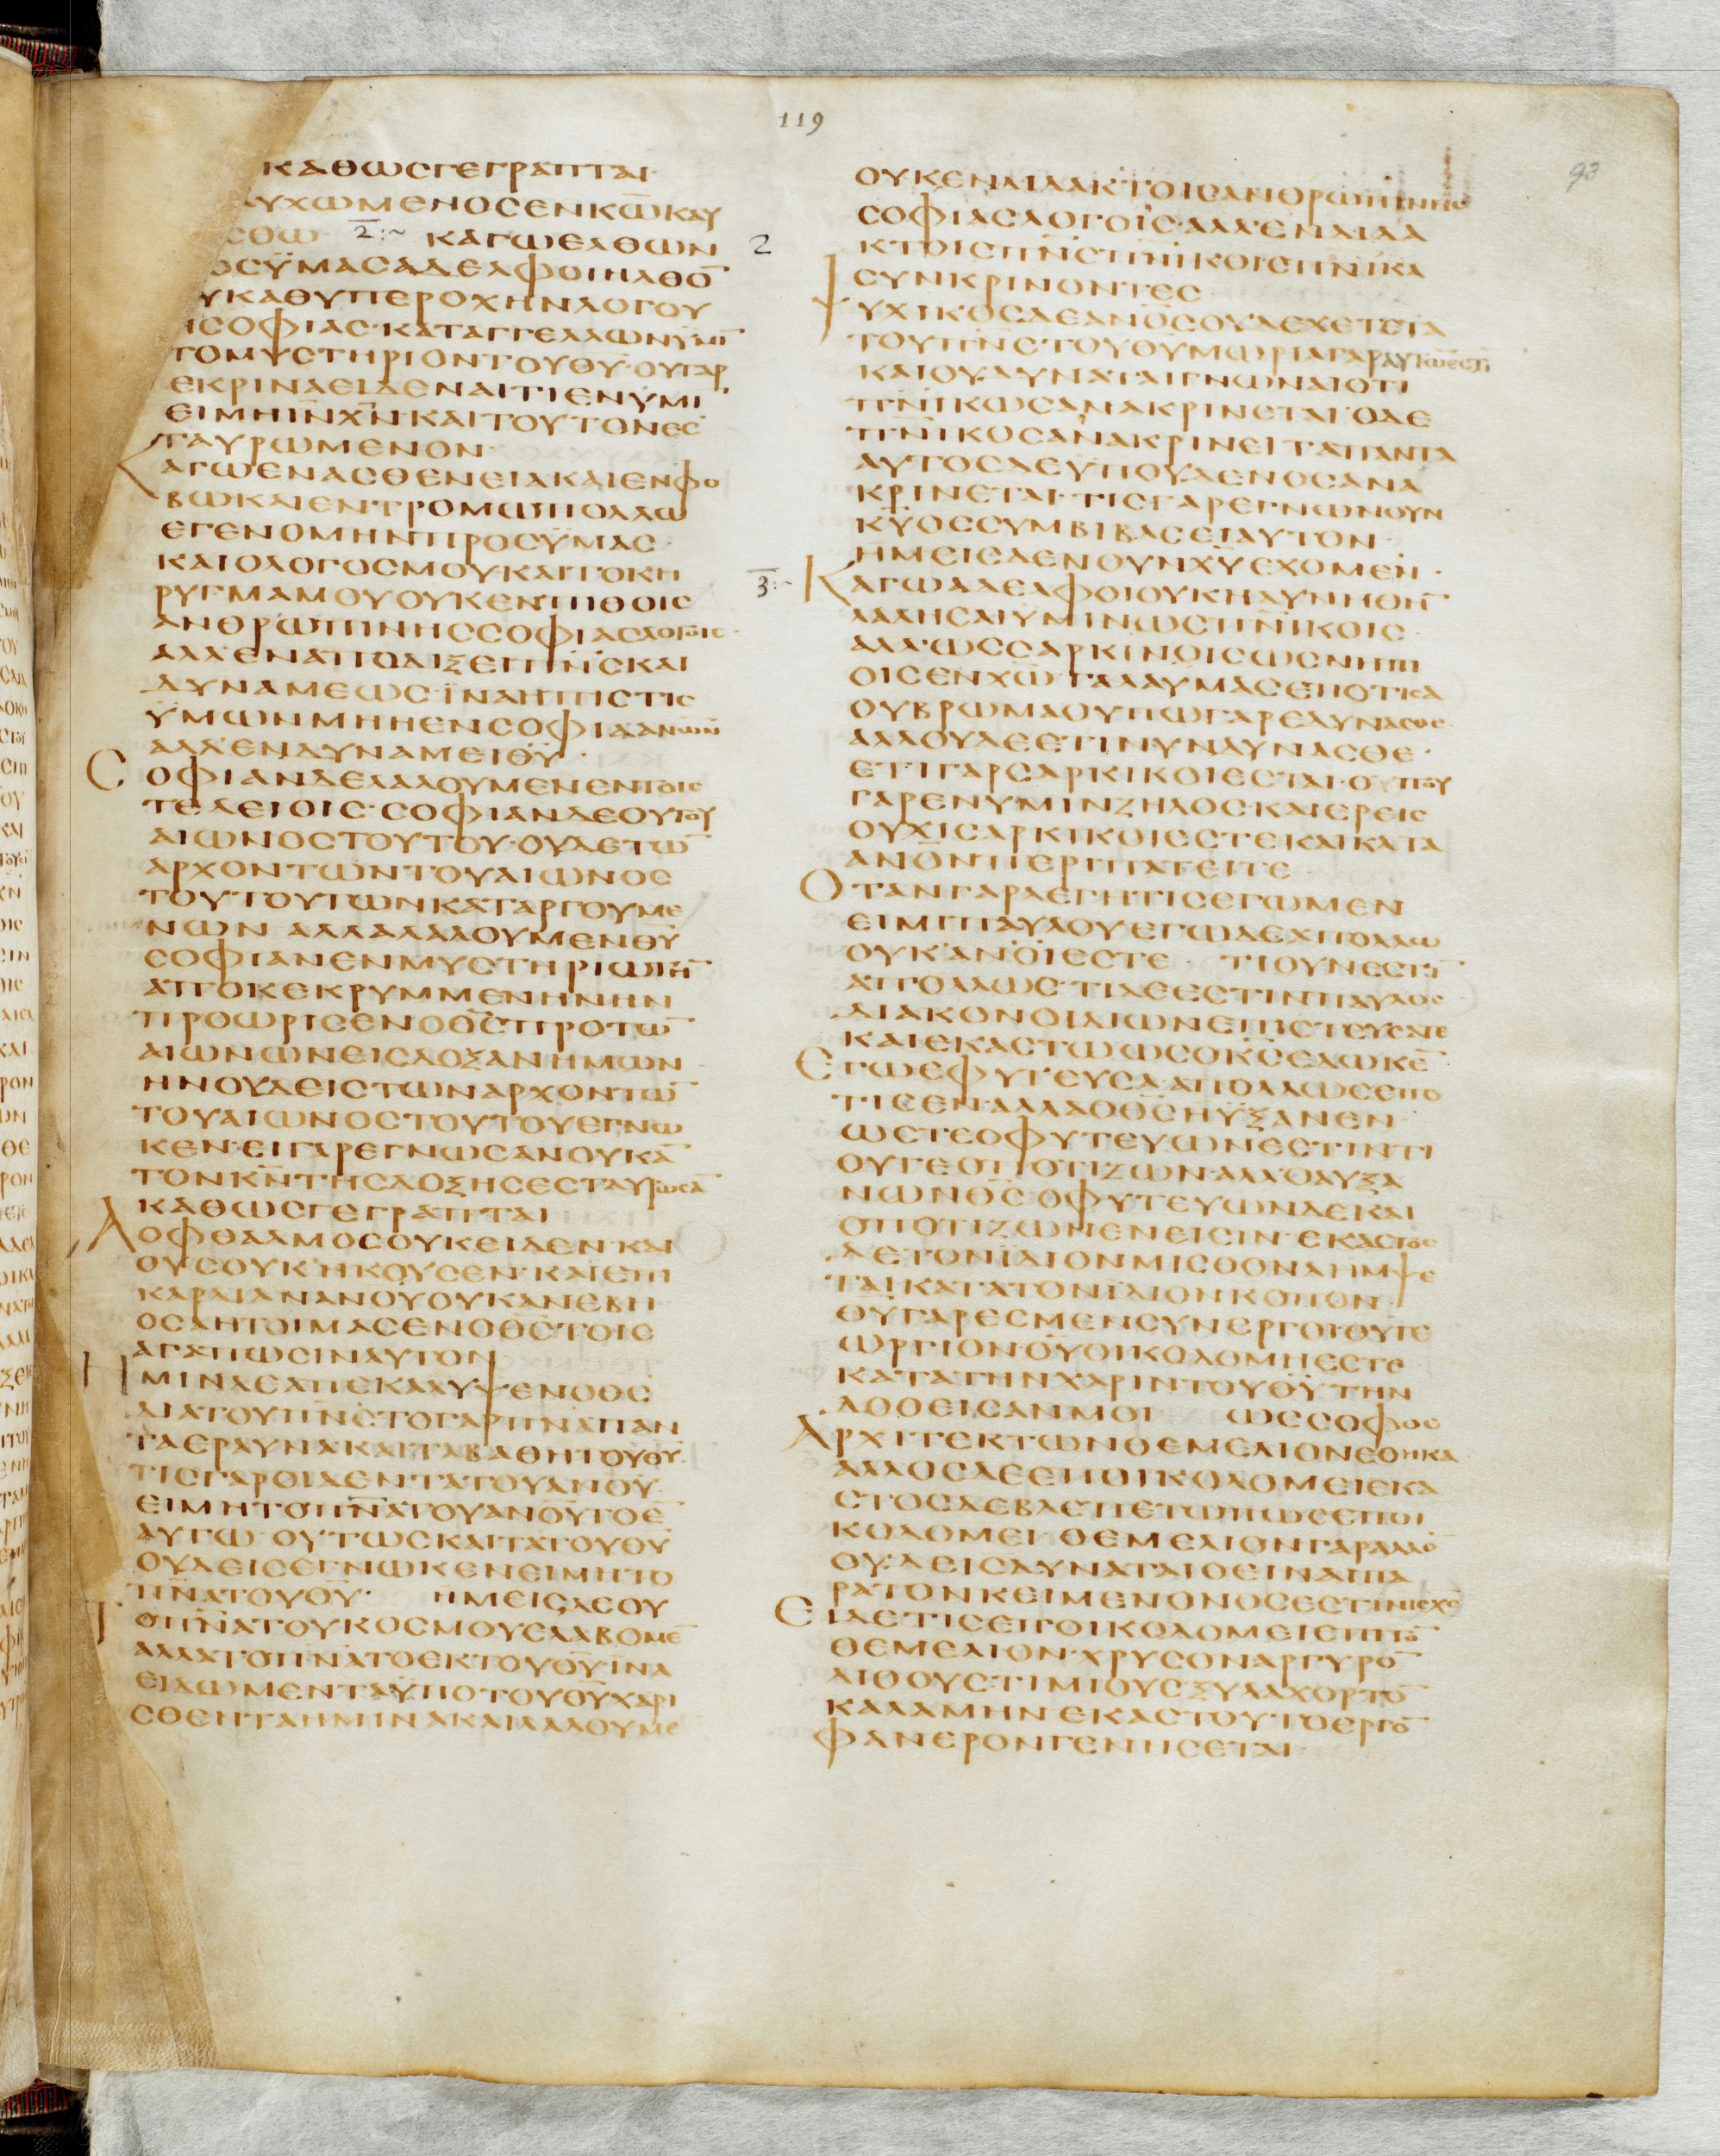 119
93
ΚΑΘΩϹΓΕΓΡΑΠΤΑΙ·
ΑΥΧΩΜΕΝΟϹΕΝΚ̅Ω̅ΚΑΥ
ϹΘΩ 2:~ ΚΑΓΩΕΛΘΩΝ
ΟϹΫΜΑϹΑΔΕΛΦΟΙΗΛΘΟ̅
ΥΚΑΘΥΠΕΡΟΧΗΝΛΟΓΟΥ
ΗϹΟΦΙΑϹ·ΚΑΤΑΓΓΕΛΛΩΝΫΜΙ̅
ΤΟΜΥϹΤΗΡΙΟΝΤΟΥΘ̅Υ̅·ΟΥΓΑΡ
ΕΚΡΙΝΑΕΙΔΕΝΑΙΤΙΕΝΫΜΙ
ΕΙΜΗΙ̅Ν̅Χ̅Ν̅·ΚΑΙΤΟΥΤΟΝΕϹ
ΤΑΥΡΩΜΕΝΟΝ·
ΚΑΓΩΕΝΑϹΘΕΝΕΙΑΚΑΙΕΝΦΟ
ΒΩΚΑΙΕΝΤΡΟΜΩΠΟΛΛΩ
ΕΓΕΝΟΜΗΝΠΡΟϹΫΜΑϹ·
ΚΑΙΟΛΟΓΟϹΜΟΥ·ΚΑΙΤΟΚΗ
ΡΥΓΜΑΜΟΥΟΥΚΕΝΠΙΘΟΙϹ
ΑΝΘΡΩΠΙΝΗϹϹΟΦΙΑϹΛΟΓΟΙϹ·
ΑΛΛΕΝΑΠΟΔΙΞΕΙΠ̅Ν̅Ϲ̅ΚΑΙ
ΔΥΝΑΜΕΩϹ·ΪΝΑΗΠΙϹΤΙϹ
ΫΜΩΝΜΗΗΕΝϹΟΦΙΑΑΝΩ̅Ν̅
ΑΛΛΕΝΔΥΝΑΜΕΙΘ̅Υ̅·
ϹΟΦΙΑΝΔΕΛΑΛΟΥΜΕΝΕΝΤΟΙϹ
ΤΕΛΕΙΟΙϹ·ϹΟΦΙΑΝΔΕΟΥΤΟΥ
ΑΙΩΝΟϹΤΟΥΤΟΥ·ΟΥΔΕΤΩ̅
ΑΡΧΟΝΤΩΝΤΟΥΑΙΩΝΟϹ
ΤΟΥΤΟΥΤΩΝΚΑΤΑΡΓΟΥΜΕ
ΝΩΝ ΑΛΛΑΛΑΛΟΥΜΕΝΘ̅Υ̅
ϹΟΦΙΑΝΕΝΜΥϹΤΗΡΙΩΤΗ̅
ΑΠΟΚΕΚΡΥΜΜΕΝΗΝΗΝ
ΠΡΟΩΡΙϹΕΝΟΘ̅Ϲ̅ΠΡΟΤΩ̅
ΑΙΩΝΩΝΕΙϹΔΟΞΑΝΗΜΩΝ
ΗΝΟΥΔΕΙϹΤΩΝΑΡΧΟΝΤΩ̅
ΤΟΥΑΙΩΝΟϹΤΟΥΤΟΥΕΓΝΩ
ΚΕΝ·ΕΙΓΑΡΕΓΝΩϹΑΝΟΥΚΑ̅
ΤΟΝΚ̅Ν̅ΤΗϹΔΟΞΗϹΕϹΤΑΥΡΩϹΑ̅
ΚΑΘΩϹΓΕΓΡΑΠΤΑΙ
ΑΟΦΘΑΛΜΟϹΟΥΚΕΙΔΕΝ·ΚΑΙ
ΟΥϹΟΥΚΗΚΟΥϹΕΝ·ΚΑΙΕΠΙ
ΚΑΡΔΙΑΝΑΝ̅Ο̅Υ̅ΟΥΚΑΝΕΒΗ·
ΟϹΑΗΤΟΙΜΑϹΕΝΟΘ̅Ϲ̅ΤΟΙϹ
ΑΓΑΠΩϹΙΝΑΥΤΟΝ
ΗΜΙΝΔΕΑΠΕΚΑΛΥΨΕΝΟΘ̅Ϲ̅
ΔΙΑΤΟΥΠ̅Ν̅Ϲ̅ΤΟΓΑΡΠ̅Ν̅Α̅ΠΑΝ
ΤΑΕΡΑΥΝΑΚΑΙΤΑΒΑΘΗΤΟΥΘ̅Υ̅·
ΤΙϹΓΑΡΟΙΔΕΝΤΑΤΟΥΑΝ̅Ο̅Υ̅·
ΕΙΜΗΤΟΠ̅Ν̅Α̅ΤΟΥΑΝ̅Ο̅Υ̅ΤΟΕ̅
ΑΥΤΩ·ΟΥΤΩϹΚΑΙΤΑΤΟΥΘ̅Υ̅
ΟΥΔΕΙϹΕΓΝΩΚΕΝΕΙΜΗΤΟ
Π̅Ν̅Α̅ΤΟΥΘ̅Υ̅· ΗΜΕΙϹΔΕΟΥ
ΤΟΠ̅Ν̅Α̅ΤΟΥΚΟϹΜΟΥΕΛΑΒΟΜΕ̅
ΑΛΛΑΤΟΠ̅Ν̅Α̅ΤΟΕΚΤΟΥΘ̅Υ̅·ΪΝΑ
ΕΙΔΩΜΕΝΤΑΫΠΟΤΟΥΘ̅Υ̅ΧΑΡΙ
ϹΘΕΝΤΑΗΜΙΝΑΚΑΙΛΑΛΟΥΜΕ
ΟΥΚΕΝΔΙΔΑΚΤΟΙϹΑΝΘΡΩΠΙΝΗϹ
ϹΟΦΙΑϹΛΟΓΟΙϹ·ΑΛΛΕΝΔΙΔΑ
2
ΚΤΟΙϹΠ̅Ν̅Ϲ̅Π̅Ν̅ΙΚΟΙϹΠ̅Ν̅ΙΚΑ
ϹΥΝΚΡΙΝΟΝΤΕϹ
ΨΥΧΙΚΟϹΔΕΑΝ̅Ο̅Ϲ̅ΟΥΔΕΧΕΤΕΤΑ
ΤΟΥΠ̅Ν̅Ϲ̅ΤΟΥΘ̅Υ̅ΜΩΡΙΑΓΑΡΑΥΤΩΕϹΤΙ̅
ΚΑΙΟΥΔΥΝΑΤΑΙΓΝΩΝΑΙΟΤΙ
Π̅Ν̅ΙΚΩϹΑΝΑΚΡΙΝΕΤΑΙ·ΟΔΕ
Π̅Ν̅ΙΚΟϹΑΝΑΚΡΙΝΕΙΤΑΠΑΝΤΑ
ΑΥΤΟϹΔΕΫΠΟΥΔΕΝΟϹΑΝΑ
ΚΡΙΝΕΤΑΙ·ΤΙϹΓΑΡΕΓΝΩΝΟΥΝ
Κ̅Υ̅ΟϹϹΥΜΒΙΒΑϹΕΙΑΥΤΟΝ·
ΗΜΕΙϹΔΕΝΟΥΝΧ̅Υ̅ΕΧΟΜΕΝ·
3:~ ΚΑΓΩΑΔΕΛΦΟΙΟΥΚΗΔΥΝΗΘΗ̅
ΛΑΛΗϹΑΙΫΜΙΝΩϹΠ̅Ν̅ΙΚΟΙϹ·
ΑΛΛΩϹϹΑΡΚΙΝΟΙϹΩϹΝΗΠΙ
ΟΙϹΕΝΧ̅Ω̅·ΓΑΛΑΥΜΑϹΕΠΟΤΙϹΑ
ΟΥΒΡΩΜΑΟΥΠΩΓΑΡΕΔΥΝΑϹΘΕ·
ΑΛΛΟΥΔΕΕΤΙΝΥΝΔΥΝΑϹΘΕ·
ΕΤΙΓΑΡϹΑΡΚΙΚΟΙΕϹΤΑΙ·ΟΠΟΥ
ΓΑΡΕΝΥΜΙΝΖΗΛΟϹ·ΚΑΙΕΡΕΙϹ
ΟΥΧΙϹΑΡΚΙΚΟΙΕϹΤΕΚΑΙΚΑΤΑ
ΑΝ̅Ο̅Ν̅ΠΕΡΙΠΑΤΕΙΤΕ·
ΟΤΑΝΓΑΡΛΕΓΗΤΙϹΕΓΩΜΕΝ
ΕΙΜΙΠΑΥΛΟΥΕΓΩΔΕΑΠΟΛΛΩ
ΟΥΚΑΝ̅Ο̅Ι̅ΕϹΤΕ· ΤΙΟΥΝΕϹΤΙ̅
ΑΠΟΛΛΩϹ·ΤΙΔΕΕϹΤΙΝΠΑΥΛΟϹ·
ΔΙΑΚΟΝΟΙΔΙΩΝΕΠΙϹΤΕΥϹΑΤΕ
ΚΑΙΕΚΑϹΤΩΩϹΟΚ̅Ϲ̅ΕΔΩΚΕ̅
ΕΓΩΕΦΥΤΕΥϹΑ·ΑΠΟΛΛΩϹΕΠΟ
ΤΙϹΕΝ·ΑΛΛΑΟΘ̅Ϲ̅ΗΥΞΑΝΕΝ·
ΩϹΤΕΟΦΥΤΕΥΩΝΕϹΤΙΝΤΙ
ΟΥΤΕΟΠΟΤΙΖΩΝ·ΑΛΛΟΑΥΞΑ
ΝΩΝΘ̅Ϲ̅·ΟΦΥΤΕΥΩΝΔΕΚΑΙ
ΟΠΟΤΙΖΩΝΕΝΕΙϹΙΝ·ΕΚΑϹΤΟϹ
ΔΕΤΟΝΪΔΙΟΝΜΙϹΘΟΝΛΗΜΨΕ
ΤΑΙΚΑΤΑΤΟΝΪΔΙΟΝΚΟΠΟΝ·
Θ̅Υ̅ΓΑΡΕϹΜΕΝϹΥΝΕΡΓΟΙ·Θ̅Υ̅ΓΕ
ΩΡΓΙΟΝ·Θ̅Υ̅ΟΙΚΟΔΟΜΗΕϹΤΕ
ΚΑΤΑΤΗΝΧΑΡΙΝΤΟΥΘ̅Υ̅ΤΗΝ
ΔΟΘΕΙϹΑΝΜΟΙ ΩϹϹΟΦΟϹ
ΑΡΧΙΤΕΚΤΩΝΘΕΜΕΛΙΟΝΕΘΗΚΑ
ΑΛΛΟϹΔΕΕΠΟΙΚΟΔΟΜΕΙΕΚΑ
ϹΤΟϹΔΕΒΛΕΠΕΤΩΠΩϹΕΠΟΙ
ΚΟΔΟΜΕΙ·ΘΕΜΕΛΙΟΝΓΑΡΑΛΛΟ̅
ΟΥΔΕΙϹΔΥΝΑΤΑΙΘΕΙΝΑΙΠΑ
ΡΑΤΟΝΚΕΙΜΕΝΟΝΟϹΕϹΤΙΝΙ̅Ϲ̅Χ̅Ϲ̅
ΕΙΔΕΤΙϹΕΠΟΙΚΟΔΟΜΕΙΕΠΙΤΟ̅
ΘΕΜΕΛΙΟΝ·ΧΡΥϹΟΝΑΡΓΥΡΟ̅
ΛΙΘΟΥϹΤΙΜΙΟΥϹΞΥΛΑΧΟΡΤΟ̅
ΚΑΛΑΜΗΝ·ΕΚΑϹΤΟΥΤΟΕΡΓΟ̅
ΦΑΝΕΡΟΝΓΕΝΗϹΕΤΑΙ·